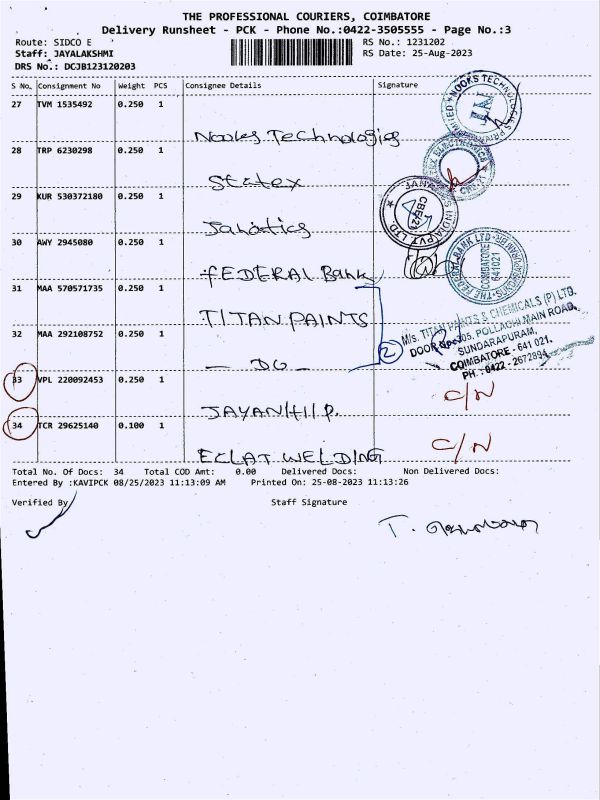 THE PROFESSIONAL COURIERS, COIMBATORE
Delivery Runsheet - PCK - Phone No.:0422-3505555 - Page No.:3
Route: SIDCO E RS No.: 1231202
Staff: JAYALAKSHMI RS Date: 25-Aug-2023
DRS No.: DCJB123120203
S No. Consignment No Weight PCS Consignee Details Signature
27 TVM 1535492 0.250 1
Nooks Technologies
28 TRP 6230298 0.250 1
Statex
29 KUR 530372180 0.250 1
Janatics
30 AWY 2945080 0.250 1
FEDERAL Bank
31 MAA 570571735 0.250 1
TITAN PAINTS
32 MAA 292108752 0.250 1
- DO -
2
M/s. TITAN PAINTS & CHEMICALS (P) LTD.
POLLACHI MAIN ROAD,
SUNDARAPURAM,
COIMBATORE - 641 021.
PH : 0422 - 2672894
33 VPL 220092453 0.250 1
C/N
34 TCR 29625140 0.100 1
ECLAT WELDING C/N
Total No. Of Docs: 34 Total COD Amt: 0.00 Delivered Docs: Non Delivered Docs:
Entered By :KAVIPCK 08/25/2023 11:13:09 AM Printed On: 25-08-2023 11:13:26
Verified By Staff Signature